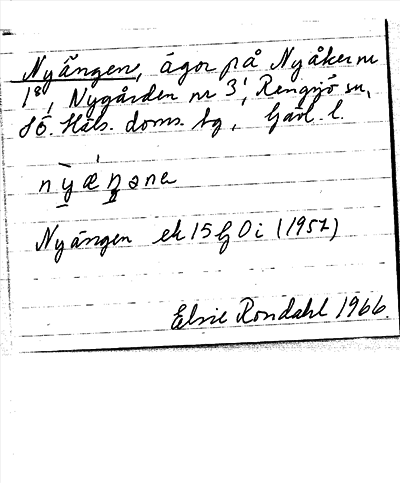 Nyängen, ägor på Nyåker nr
1⁸, Nygården nr 3¹, Rengsjö sn,
Sö. Häls. doms. tg, Gävl. l.
nyæŋəna
Nyängen ek 15 g 0 i (1957)
Elsie Rondahl 1966.